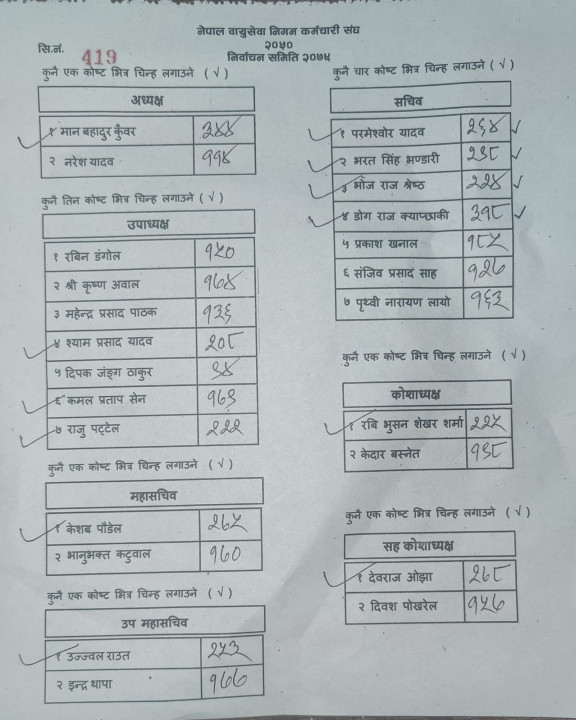 नेपाल वायुसेवा निगम कर्मचारी संघ
२०५०
सि.नं. 419
निर्वाचन समिति २०७५
कुनै एक कोष्ट भित्र चिन्ह लगाउने (√)
अध्यक्ष
१ मान बहादुर कुँवर
२ नरेश यादव ११४
कुनै तिन कोष्ट भित्र चिन्ह लगाउने (√)
उपाध्यक्ष
१ रबिन डंगोल १५०
२ श्री कृष्ण अवाल १६४
३ महेन्द्र प्रसाद पाठक १३६
४ श्याम प्रसाद यादव २०८
५ दिपक जंङ्ग ठाकुर ९४
६ कमल प्रताप सेन १६३
७ राजु पट्टेल २२२
कुनै एक कोष्ट भित्र चिन्ह लगाउने (√)
महासचिव
१ केशब पौडेल २६५
२ भानुभक्त कटुवाल १६०
कुनै एक कोष्ट भित्र चिन्ह लगाउने (√)
उप महासचिव
१ उज्ज्वल राउत २५३
२ इन्द्र थापा १७७
कुनै चार कोष्ट भित्र चिन्ह लगाउने (√)
सचिव
१ परमेश्वोर यादव २६४
२ भरत सिंह भण्डारी २३८
३ भोज राज श्रेष्ठ २२४
४ डोग राज क्याप्छाकी ३१८
५ प्रकाश खनाल १८५
६ संजिव प्रसाद साह १२७
७ पृथ्वी नारायण लायो १६३
कुनै एक कोष्ट भित्र चिन्ह लगाउने (√)
कोशाध्यक्ष
१ रबि भुसन शेखर शर्मा २२५
२ केदार बस्नेत १९८
कुनै एक कोष्ट भित्र चिन्ह लगाउने (√)
सह कोशाध्यक्ष
१ देवराज ओझा २६८
२ दिवश पोखरेल १५७